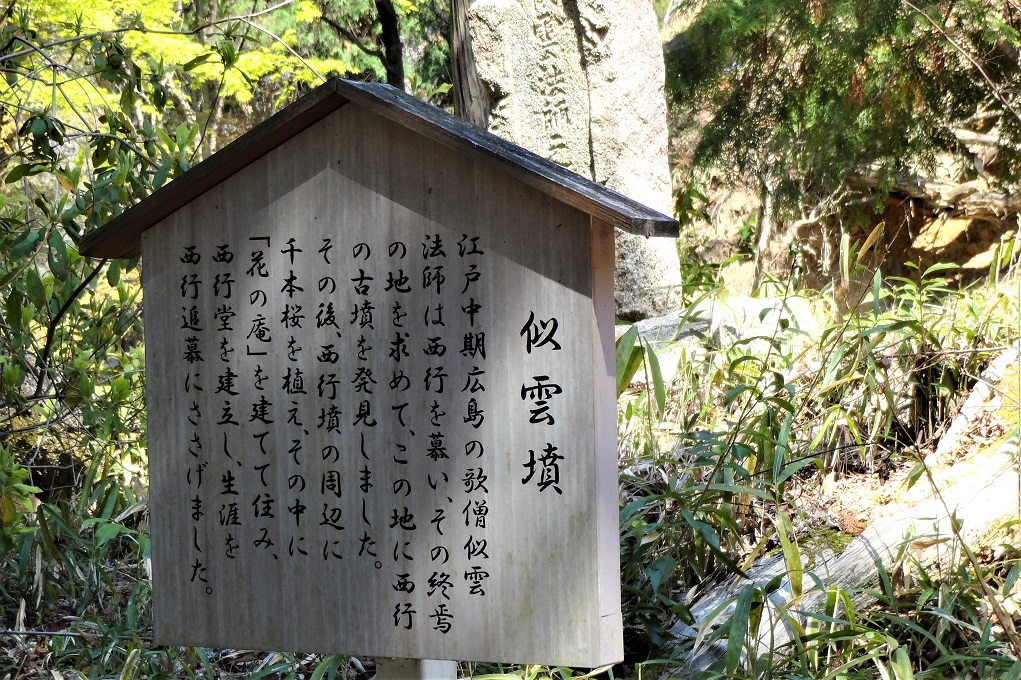 似雲墳
江戸中期広島の歌僧似雲
法師は西行を慕い、その終焉
の地を求めて、この地に西行
の古墳を発見しました。
その後、西行墳の周辺に
千本桜を植え、その中に
「花の庵」を建てて住み、
西行堂を建立し、生涯を
西行追慕にささげました。